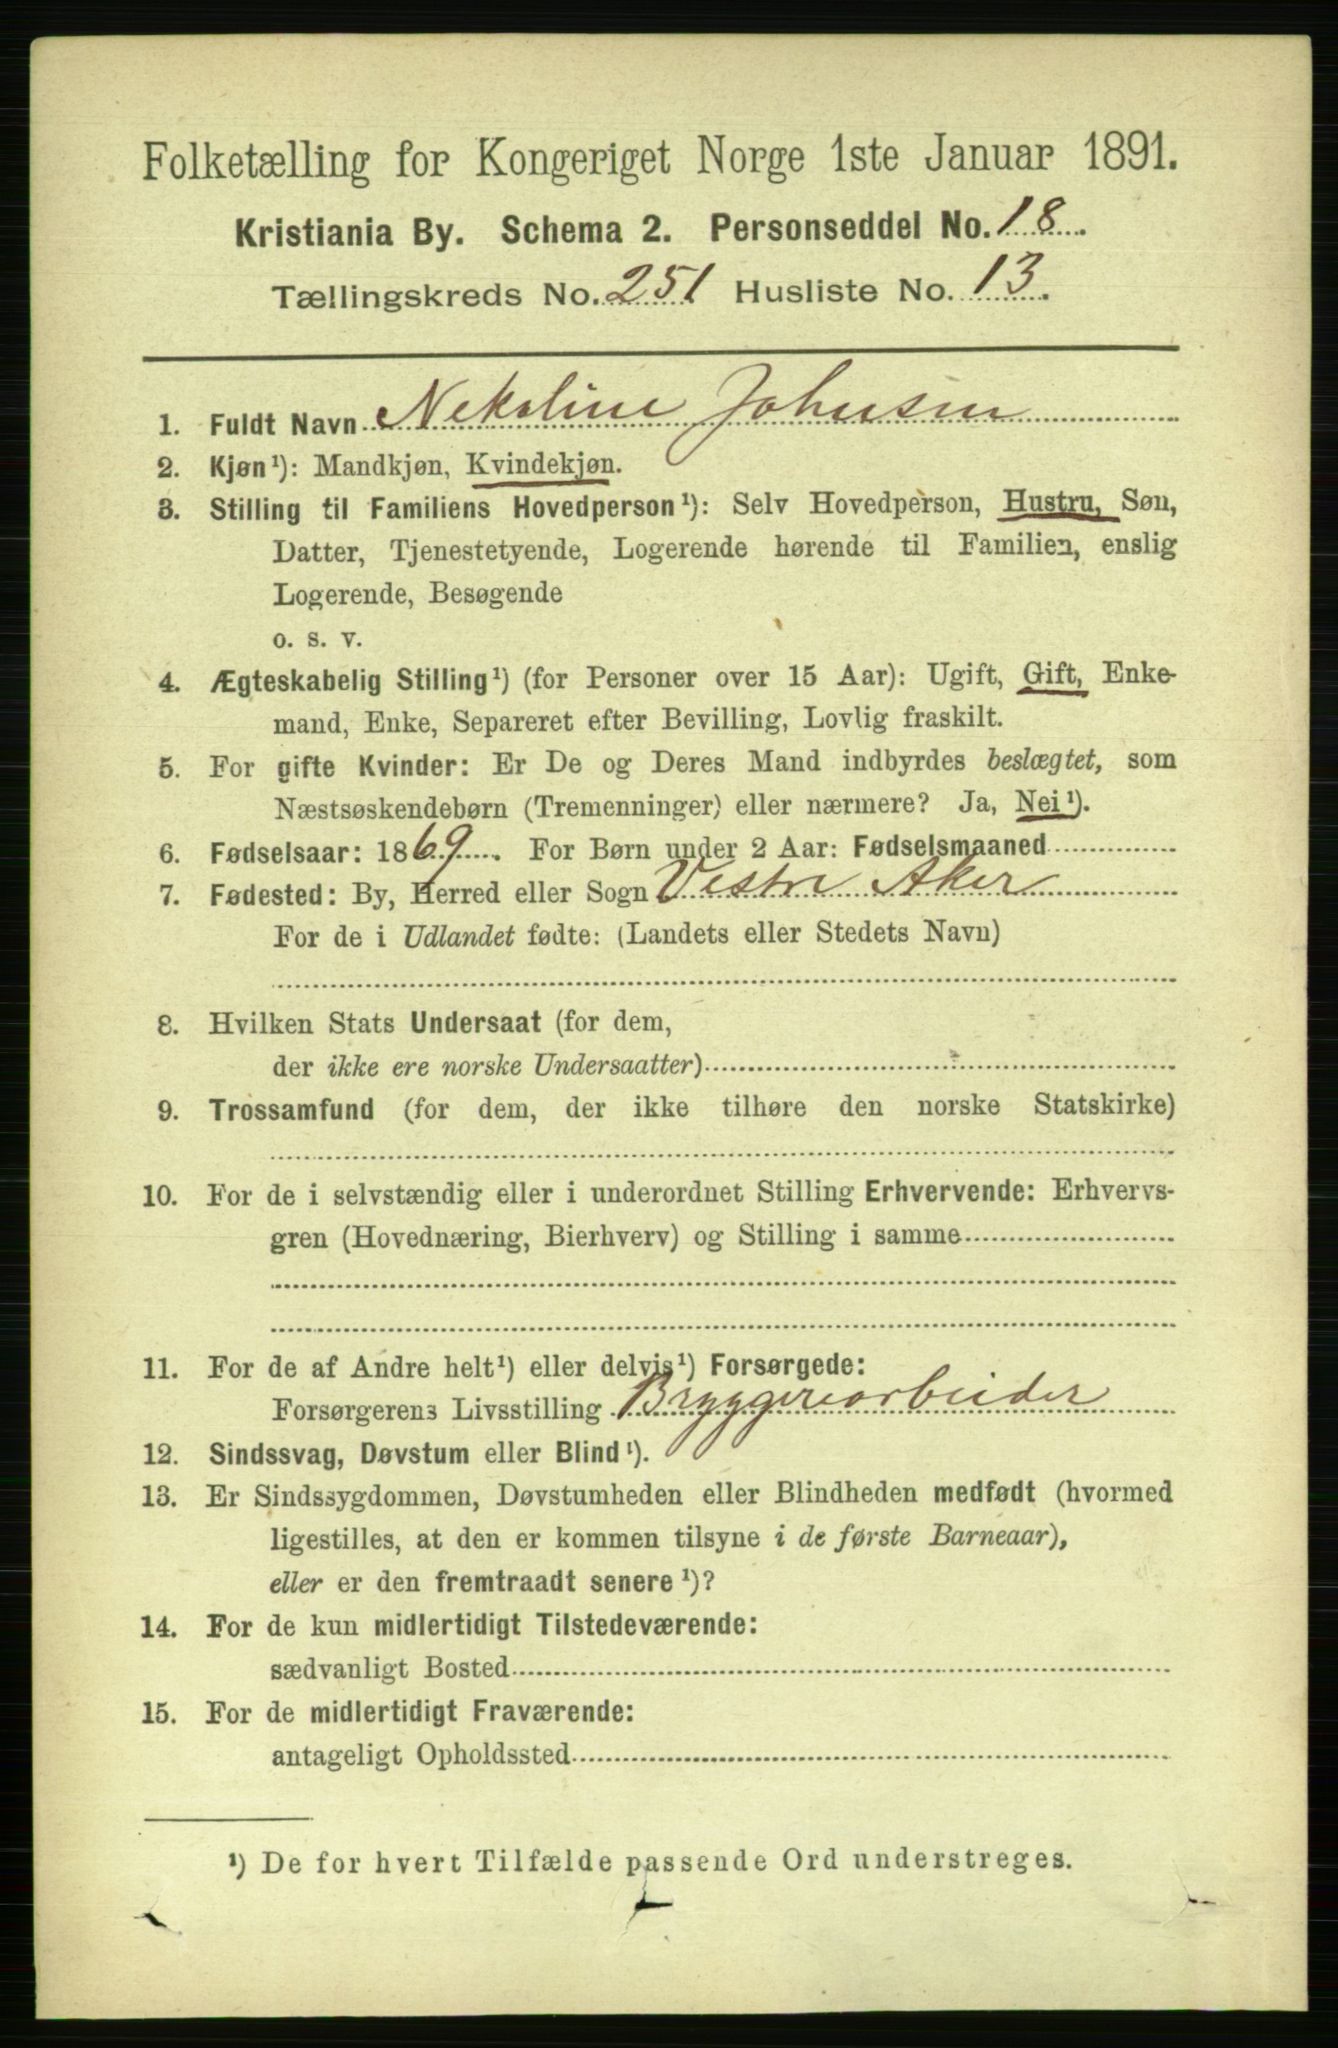 Folketælling for Kongeriget Norge 1ste Januar 1891.
Kristiania By. Schema 2. Personseddel No. 18.
Tællingskreds No. 251 Husliste No. 13.
1. Fuldt Navn Nekoline Johnsen
2. Kjøn¹): Mandkjøn, Kvindekjøn.
3. Stilling til Familiens Hovedperson¹): Selv Hovedperson, Hustru, Søn,
Datter, Tjenestetyende, Logerende hørende til Familien, enslig
Logerende, Besøgende
o. s. v.
4. Ægteskabelig Stilling¹) (for Personer over 15 Aar): Ugift, Gift, Enke-
mand, Enke, Separeret efter Bevilling, Lovlig fraskilt.
5. For gifte Kvinder: Er De og Deres Mand indbyrdes beslægtet, som
Næstsøskendebørn (Tremenninger) eller nærmere? Ja, Nei¹).
6. Fødselsaar: 1869. For Børn under 2 Aar: Fødselsmaaned
7. Fødested: By, Herred eller Sogn Vestre Aker
For de i Udlandet fødte: (Landets eller Stedets Navn)
8. Hvilken Stats Undersaat (for dem,
der ikke ere norske Undersaatter)
9. Trossamfund (for dem, der ikke tilhøre den norske Statskirke)
10. For de i selvstændig eller i underordnet Stilling Erhvervende: Erhvervs-
gren (Hovednæring, Bierhverv) og Stilling i samme
11. For de af Andre helt¹) eller delvis¹) Forsørgede:
Forsørgerens Livsstilling Bryggerearbeider
12. Sindssvag, Døvstum eller Blind¹).
13. Er Sindssygdommen, Døvstumheden eller Blindheden medfødt (hvormed
ligestilles, at den er kommen tilsyne i de første Barneaar),
eller er den fremtraadt senere¹)?
14. For de kun midlertidigt Tilstedeværende:
sædvanligt Bosted
15. For de midlertidigt Fraværende:
antageligt Opholdssted
¹) De for hvert Tilfælde passende Ord understreges.